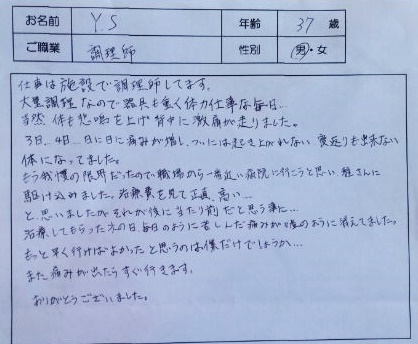 お名前 Y.S 年齢 37 歳
ご職業 調理師 性別 男・女
仕事は施設で調理師してます。
大量調理なので器具も重く体力仕事な毎日…
当然 体も悲鳴を上げ背中に激痛が走りました。
3日、4日…日に日に痛みが増し、ついには起き上がれない 寝返りも出来ない
体になってました。
もう我慢の限界だったので職場から一番近い病院に行こうと思い 整さんに
駆け込みました。治療費を見て正直、高い…
と、思いましたが それが後に当たり前だと思う事に…
治療してもらった次の日、毎日のように苦しんだ痛みが嘘のように消えてました。
もっと早く行けばよかったと思うのは僕だけでしょうか…
また痛みが出たらすぐ行きます。
ありがとうございました。